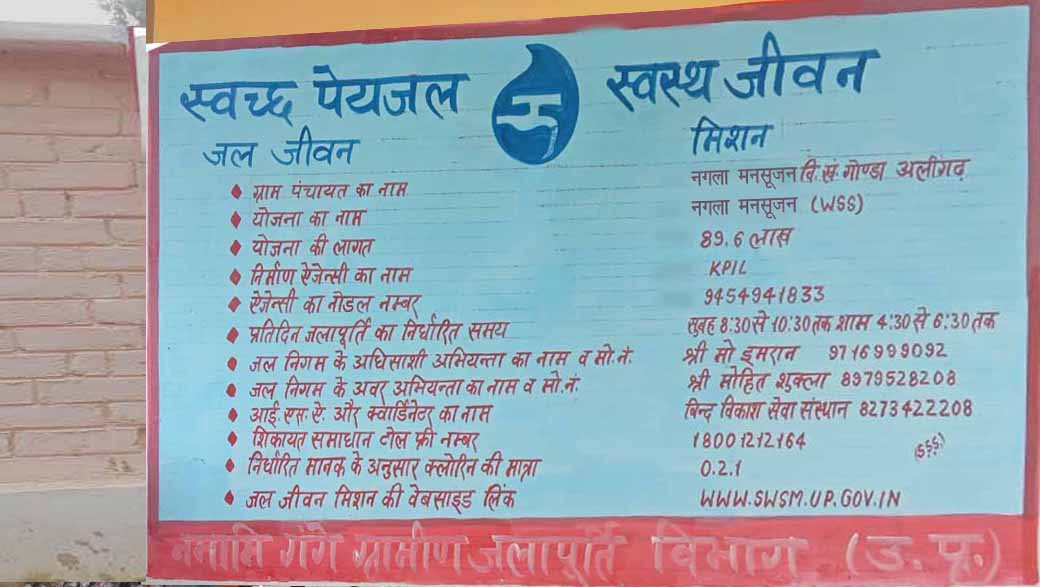 स्वच्छ पेयजल स्वस्थ जीवन
जल जीवन मिशन
ग्राम पंचायत का नाम नगला मनसूजन वि. सं. गोण्डा अलीगढ़
योजना का नाम नगला मनसूजन (WSS)
योजना की लागत 89.6 लाख
निर्माण ऐजेन्सी का नाम KPIL
ऐजेन्सी का नोडल नम्बर 9454941833
प्रतिदिन जलापूर्ति का निर्धारित समय सुबह 8:30 से 10:30 तक शाम 4:30 से 6:30 तक
जल निगम के अधिसाशी अभियन्ता का नाम व मो.नं. श्री मो इमरान 9716999092
जल निगम के अवर अभियन्ता का नाम व मो.नं. श्री मोहित शुक्ला 8979528208
आई.एस.ऐ. और क्वार्डिनेटर का नाम बिन्द विकाश सेवा संस्थान 8273422208
शिकायत समाधान टोल फ्री नम्बर 18001212164 (SSS)
निर्धारित मानक के अनुसार क्लोरिन की मात्रा 0.2.1
जल जीवन मिशन की वेबसाइड लिंक WWW.SWSM.UP.GOV.IN
नमामि गंगे ग्रामीण जलापूर्ति विभाग (उ.प्र.)